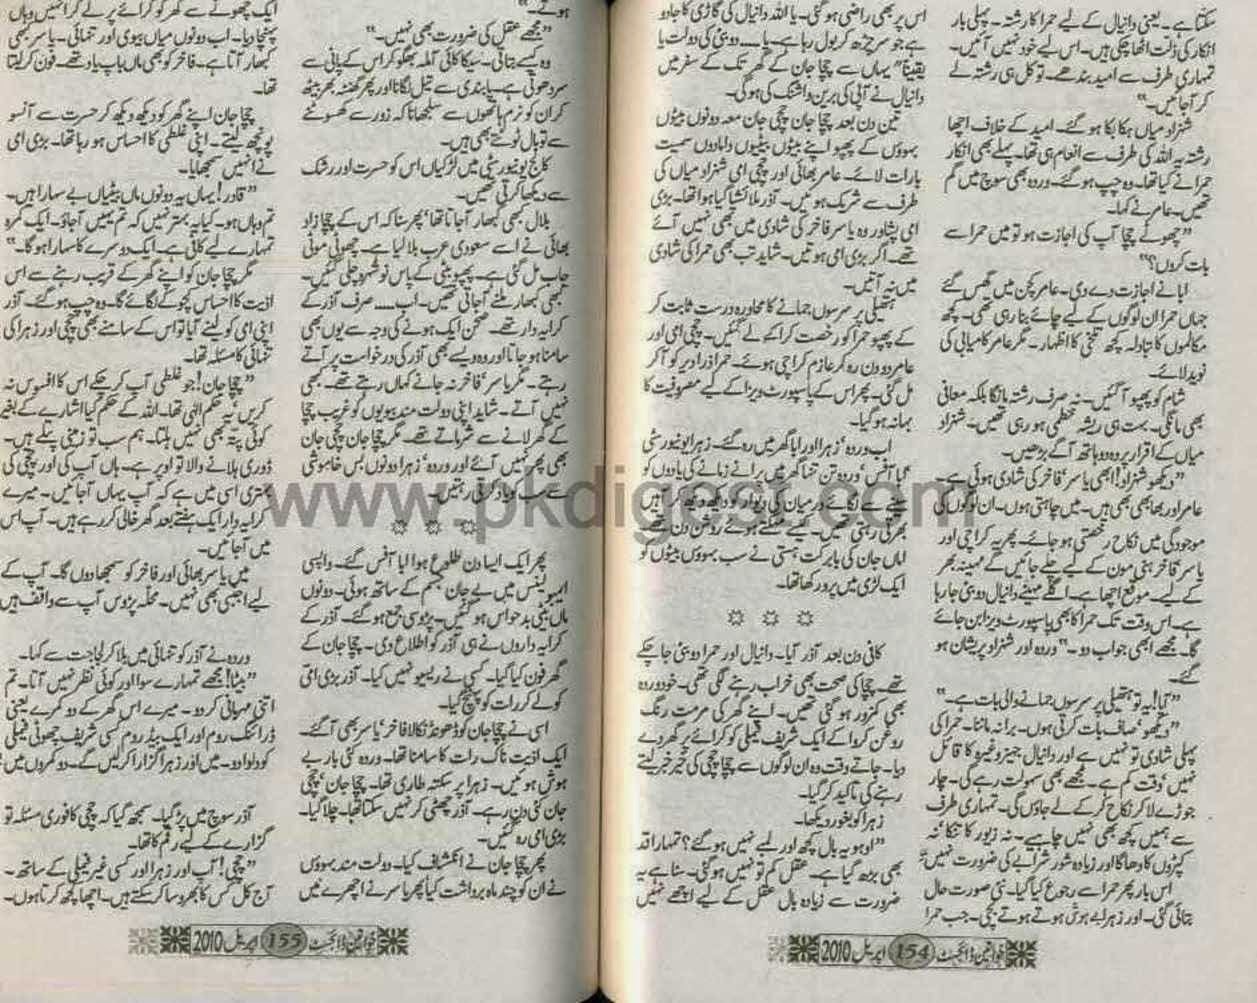 سکتا ہے۔ یعنی دانیال کے لیے حمرا کا رشتہ۔ پہلی بار
انکار کی ذلت اٹھا چکی ہیں۔ اس لیے خود نہیں آئیں۔
تمہاری طرف سے امید بندھے۔ تو کل ہی رشتہ لے
کر آ جائیں۔"
شہزاد میاں ہکا بکا ہو گئے۔ امید کے خلاف اچھا
رشتہ یہ اللہ کی طرف سے انعام ہی تھا۔ پہلے بھی انکار
حمرا نے کیا تھا۔ وہ چپ ہو گئے۔ وردہ بھی سوچ میں گم
تھیں۔ عامر نے کہا۔
"چھوٹے چچا آپ کی اجازت ہو تو میں حمرا سے
بات کروں؟"
ابا نے اجازت دے دی۔ عامر کچن میں گھس گئے
جہاں حمرا ان لوگوں کے لیے چائے بنا رہی تھی۔ کچھ
مکالموں کا تبادلہ کچھ تلخی کا اظہار۔ مگر عامر کامیابی کی
نوید لائے۔
شام کو پھپو آ گئیں۔ نہ صرف رشتہ مانگا بلکہ معافی
بھی مانگی۔ بہت ہی ریشہ خطمی ہو رہی تھیں۔ شہزاد
میاں کے اقرار پر وہ دو ہاتھ آگے بڑھیں۔
"دیکھو شہزاد! ابھی یاسر، فاخر کی شادی ہوئی ہے۔
عامر اور بھابھی بھی ہیں۔ میں چاہتی ہوں۔ ان لوگوں کی
موجودگی میں نکاح رخصتی ہو جائے۔ پھر یہ کراچی اور
یاسر فاخر ہنی مون کے لیے چلے جائیں گے مہینہ بھر
کے لیے۔ موقع اچھا ہے۔ اگلے مہینے دانیال دوبئی جا رہا
ہے۔ اس وقت تک حمرا کا بھی پاسپورٹ ویزا بن جائے
گا۔ مجھے ابھی جواب دو۔" وردہ اور شہزاد پریشان ہو
گئے۔
"آپا! یہ تو ہتھیلی پر سرسوں جمانے والی بات ہے۔"
"دیکھو، صاف بات کرتی ہوں۔ برا نہ ماننا۔ حمرا کی
پہلی شادی تو نہیں ہے اور دانیال جہیز وغیرہ کا قائل
نہیں، وقت کم ہے۔ مجھے بھی سہولت رہے گی۔ چار
جوڑے لا کر نکاح کر کے لے جاؤں گی۔ تمہاری طرف
سے ہمیں کچھ بھی نہیں چاہیے۔ نہ زیور کا تنکا، نہ
کپڑوں کا دھاگا اور زیادہ شور شرابے کی ضرورت نہیں"
اس بار پھر حمرا سے رجوع کیا گیا۔ نئی صورت حال
بتائی گئی۔ اور زہرا بے ہوش ہوتے ہوتے بچی۔ جب حمرا
خواتین ڈائجسٹ 154 اپریل 2010
اس پر بھی راضی ہو گئی۔ یا اللہ دانیال کی گاڑی کا جادو
ہے جو سر چڑھ کر بول رہا ہے۔ یا..... دوبئی کی دولت یا
یقیناً" یہاں سے چچا جان کے گھر تک کے سفر میں
دانیال نے آپی کی برین واشنگ کی ہو گی۔
تین دن بعد چچا جان چچی جان معہ دونوں بیٹوں
بہوؤں کے پھپو اپنے بیٹوں بیٹیوں دامادوں سمیت
بارات لائے۔ عامر بھائی اور چچی امی شہزاد میاں کی
طرف سے شریک ہوئیں۔ آذر ملائشیا گیا ہوا تھا۔ بڑی
امی پشاور وہ یاسر فاخر کی شادی میں بھی نہیں آئے
تھے۔ اگر بڑی امی ہوتیں۔ شاید تب بھی حمرا کی شادی
میں نہ آتیں۔
ہتھیلی پر سرسوں جمانے کا محاورہ درست ثابت کر
کے پھپو حمرا کو رخصت کرا کے لے گئیں۔ چچی امی اور
عامر دو دن رہ کر عازم کراچی ہوئے۔ حمرا ذرا دیر کو آ کر
مل گئی۔ پھر اس کے پاسپورٹ ویزا کے لیے مصروفیت کا
بہانہ ہو گیا۔
اب وردہ، زہرا اور ابا گھر میں رہ گئے۔ زہرا یونیورسٹی
ابا آفس، وردہ تن تنہا گھر میں پرانے زمانے کی یادوں کو
سینے سے لگائے درمیان کی دیوار کو دیکھ دیکھ کر آہیں
بھرتی رہتیں۔ کیسے مہکتے ہوئے روشن دن تھے
اماں جان کی بابرکت ہستی نے سب بہوؤں بیٹوں کو
ایک لڑی میں پرو رکھا تھا۔
کافی دن بعد آذر آیا۔ دانیال اور حمرا دوبئی جا چکے
تھے۔ چچا کی صحت بھی خراب رہنے لگی تھی۔ خود وردہ
بھی کمزور ہو گئی تھیں۔ اپنے گھر کی مرمت رنگ
روغن کروا کے ایک شریف فیملی کو کرائے پر گھر دے
دیا۔ جاتے وقت وہ ان لوگوں سے چچا چچی کی خیر خبر لیتے
رہنے کی تاکید کر گیا۔
زہرا کو بغور دیکھا۔
"اوہو یہ بال کچھ اور لمبے نہیں ہو گئے؟ تمہارا قد
بھی بڑھ گیا ہے۔ عقل کم تو نہیں ہو گئی۔ سنا ہے یہ
ضرورت سے زیادہ بال عقل کے لیے اچھے نہیں
ہوتے۔"
"مجھے عقل کی ضرورت بھی نہیں۔"
وہ کیسے بتاتی۔ سیکا کائی آملہ بھگو کر اس کے پانی سے
سر دھوتی ہے۔ پابندی سے تیل لگانا اور پھر گھنٹہ بھر بیٹھ
کر ان کو نرم ہاتھوں سے سلجھانا کہ زور سے کھسوٹنے
سے تو بال ٹوٹتے بھی ہیں۔
کالج یونیورسٹی میں لڑکیاں اس کو حسرت اور رشک
سے دیکھا کرتی تھیں۔
بلال بھی کبھار آ جاتا تھا، پھر سنا کہ اس کے چچا زاد
بھائی نے اسے سعودی عرب بلا لیا ہے۔ چھوٹی موٹی
جاب مل گئی ہے۔ پھپو بیٹی کے پاس نوشہرہ چلی گئیں۔
کبھی کبھار ملنے آ جاتی تھیں۔ اب..... صرف آذر کے
کرایہ دار تھے۔ صحن ایک ہونے کی وجہ سے یوں بھی
سامنا ہو جاتا اور وہ ویسے بھی آذر کی درخواست پر آتے
رہتے۔ مگر یاسر، فاخر نہ جانے کہاں رہتے تھے۔ کبھی
نہیں آتے۔ شاید اپنی دولت مند بیویوں کو غریب چچا
کے گھر لانے سے شرماتے تھے۔ مگر چچا جان چچی جان
بھی پھر نہیں آئے اور وردہ، زہرا دونوں بس خاموشی
سے سب کو یاد کرتی رہتیں۔
پھر ایک ایسا دن طلوع ہوا ابا آفس گئے۔ واپسی
ایمبولینس میں بے جان جسم کے ساتھ ہوئی۔ دونوں
ماں بیٹی بدحواس ہو گئیں۔ پڑوسی جمع ہو گئے۔ آذر کے
کرایہ داروں نے ہی آذر کو اطلاع دی۔ چچا جان کے
گھر فون کیا گیا۔ کسی نے ریسیو نہیں کیا۔ آذر بڑی امی
کو لے کر رات کو پہنچ گیا۔
اسی نے چچا جان کو ڈھونڈ نکالا فاخر، یاسر بھی آ گئے۔
ایک اذیت ناک رات کا سامنا تھا۔ وردہ کئی بار بے
ہوش ہوئیں۔ زہرا پر سکتہ طاری تھا۔ چچا جان، چچی
جان کئی دن رہے۔ آذر چھٹی کر نہیں سکتا تھا۔ چلا گیا۔
بڑی امی رہ گئیں۔
پھر چچا جان نے انکشاف کیا۔ دولت مند بہوؤں
نے ان کو چند ماہ برداشت کیا پھر یاسر نے اچھرے میں
خواتین ڈائجسٹ 155 اپریل 2010
ایک چھوٹے سے گھر کو کرائے پر لے کر انہیں وہاں
پہنچا دیا۔ اب دونوں میاں بیوی اور تنہائی۔ یاسر بھی
کبھار آتا ہے۔ فاخر کو بھی ماں باپ یاد تھے۔ فون کر لیتا
تھا۔
چچا جان اپنے گھر کو دیکھ دیکھ کر حسرت سے آنسو
پونچھ لیتے۔ اپنی غلطی کا احساس ہو رہا تھا۔ بڑی امی
نے انہیں سمجھایا۔
"قادر! یہاں یہ دونوں ماں بیٹیاں بے سہارا ہیں۔
تم وہاں ہو۔ کیا یہ بہتر نہیں کہ تم یہیں آ جاؤ۔ ایک کمرہ
تمہارے لیے کافی ہے۔ ایک دوسرے کا سہارا ہو گا۔"
مگر چچا جان کو اپنے گھر کے قریب رہنے سے اس
اذیت کا احساس کچوکے لگائے گا۔ وہ چپ ہو گئے۔ آذر
اپنی امی کو لینے آیا تو اس کے سامنے بھی چچی اور زہرا کی
تنہائی کا مسئلہ تھا۔
"چچا جان! جو غلطی آپ کر چکے اس کا افسوس نہ
کریں، یہ حکم الٰہی تھا۔ اللہ کے حکم کیا اشارے کے بغیر
کوئی پتہ بھی نہیں ہلتا۔ ہم سب تو زمینی پتلے ہیں۔
ڈوری ہلانے والا تو اوپر ہے۔ ہاں آپ کی اور چچی کی
بہتری اسی میں ہے کہ آپ یہاں آ جائیں۔ میرے
کرایہ دار ایک ہفتے بعد گھر خالی کر رہے ہیں۔ آپ اس
میں آ جائیں۔
میں یاسر بھائی اور فاخر کو سمجھا دوں گا۔ آپ کے
لیے اجنبی بھی نہیں۔ محلہ پڑوس آپ سے واقف ہیں
وردہ نے آذر کو تنہائی میں بلا کر لجاجت سے کہا۔
"بیٹا! مجھے تمہارے سوا اور کوئی نظر نہیں آتا۔ تم
اتنی مہربانی کر دو۔ میرے اس گھر کے دو کمرے یعنی
ڈرائنگ روم اور ایک بیڈ روم کسی شریف چھوٹی فیملی
کو دلوا دو۔ میں اور زہرا گزارا کر لیں گے۔ دو کمروں میں
آذر سوچ میں پڑ گیا۔ سمجھ گیا کہ چچی کا فوری مسئلہ تو
گزارے کے لیے رقم کا تھا۔
"چچی! آپ اور زہرا اور کسی غیر فیملی کے ساتھ۔
آج کل کس کا بھروسا کر سکتے ہیں۔ اچھا کچھ کرتا ہوں۔
www.pkdigest.com